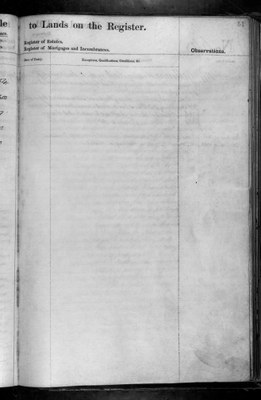 to Lands on the Register.
Register of Estates.
Register of Mortgages and Incumbrances.
Observations.
Date of Entry.
Exceptions, Qualifications, Conditions, &c.